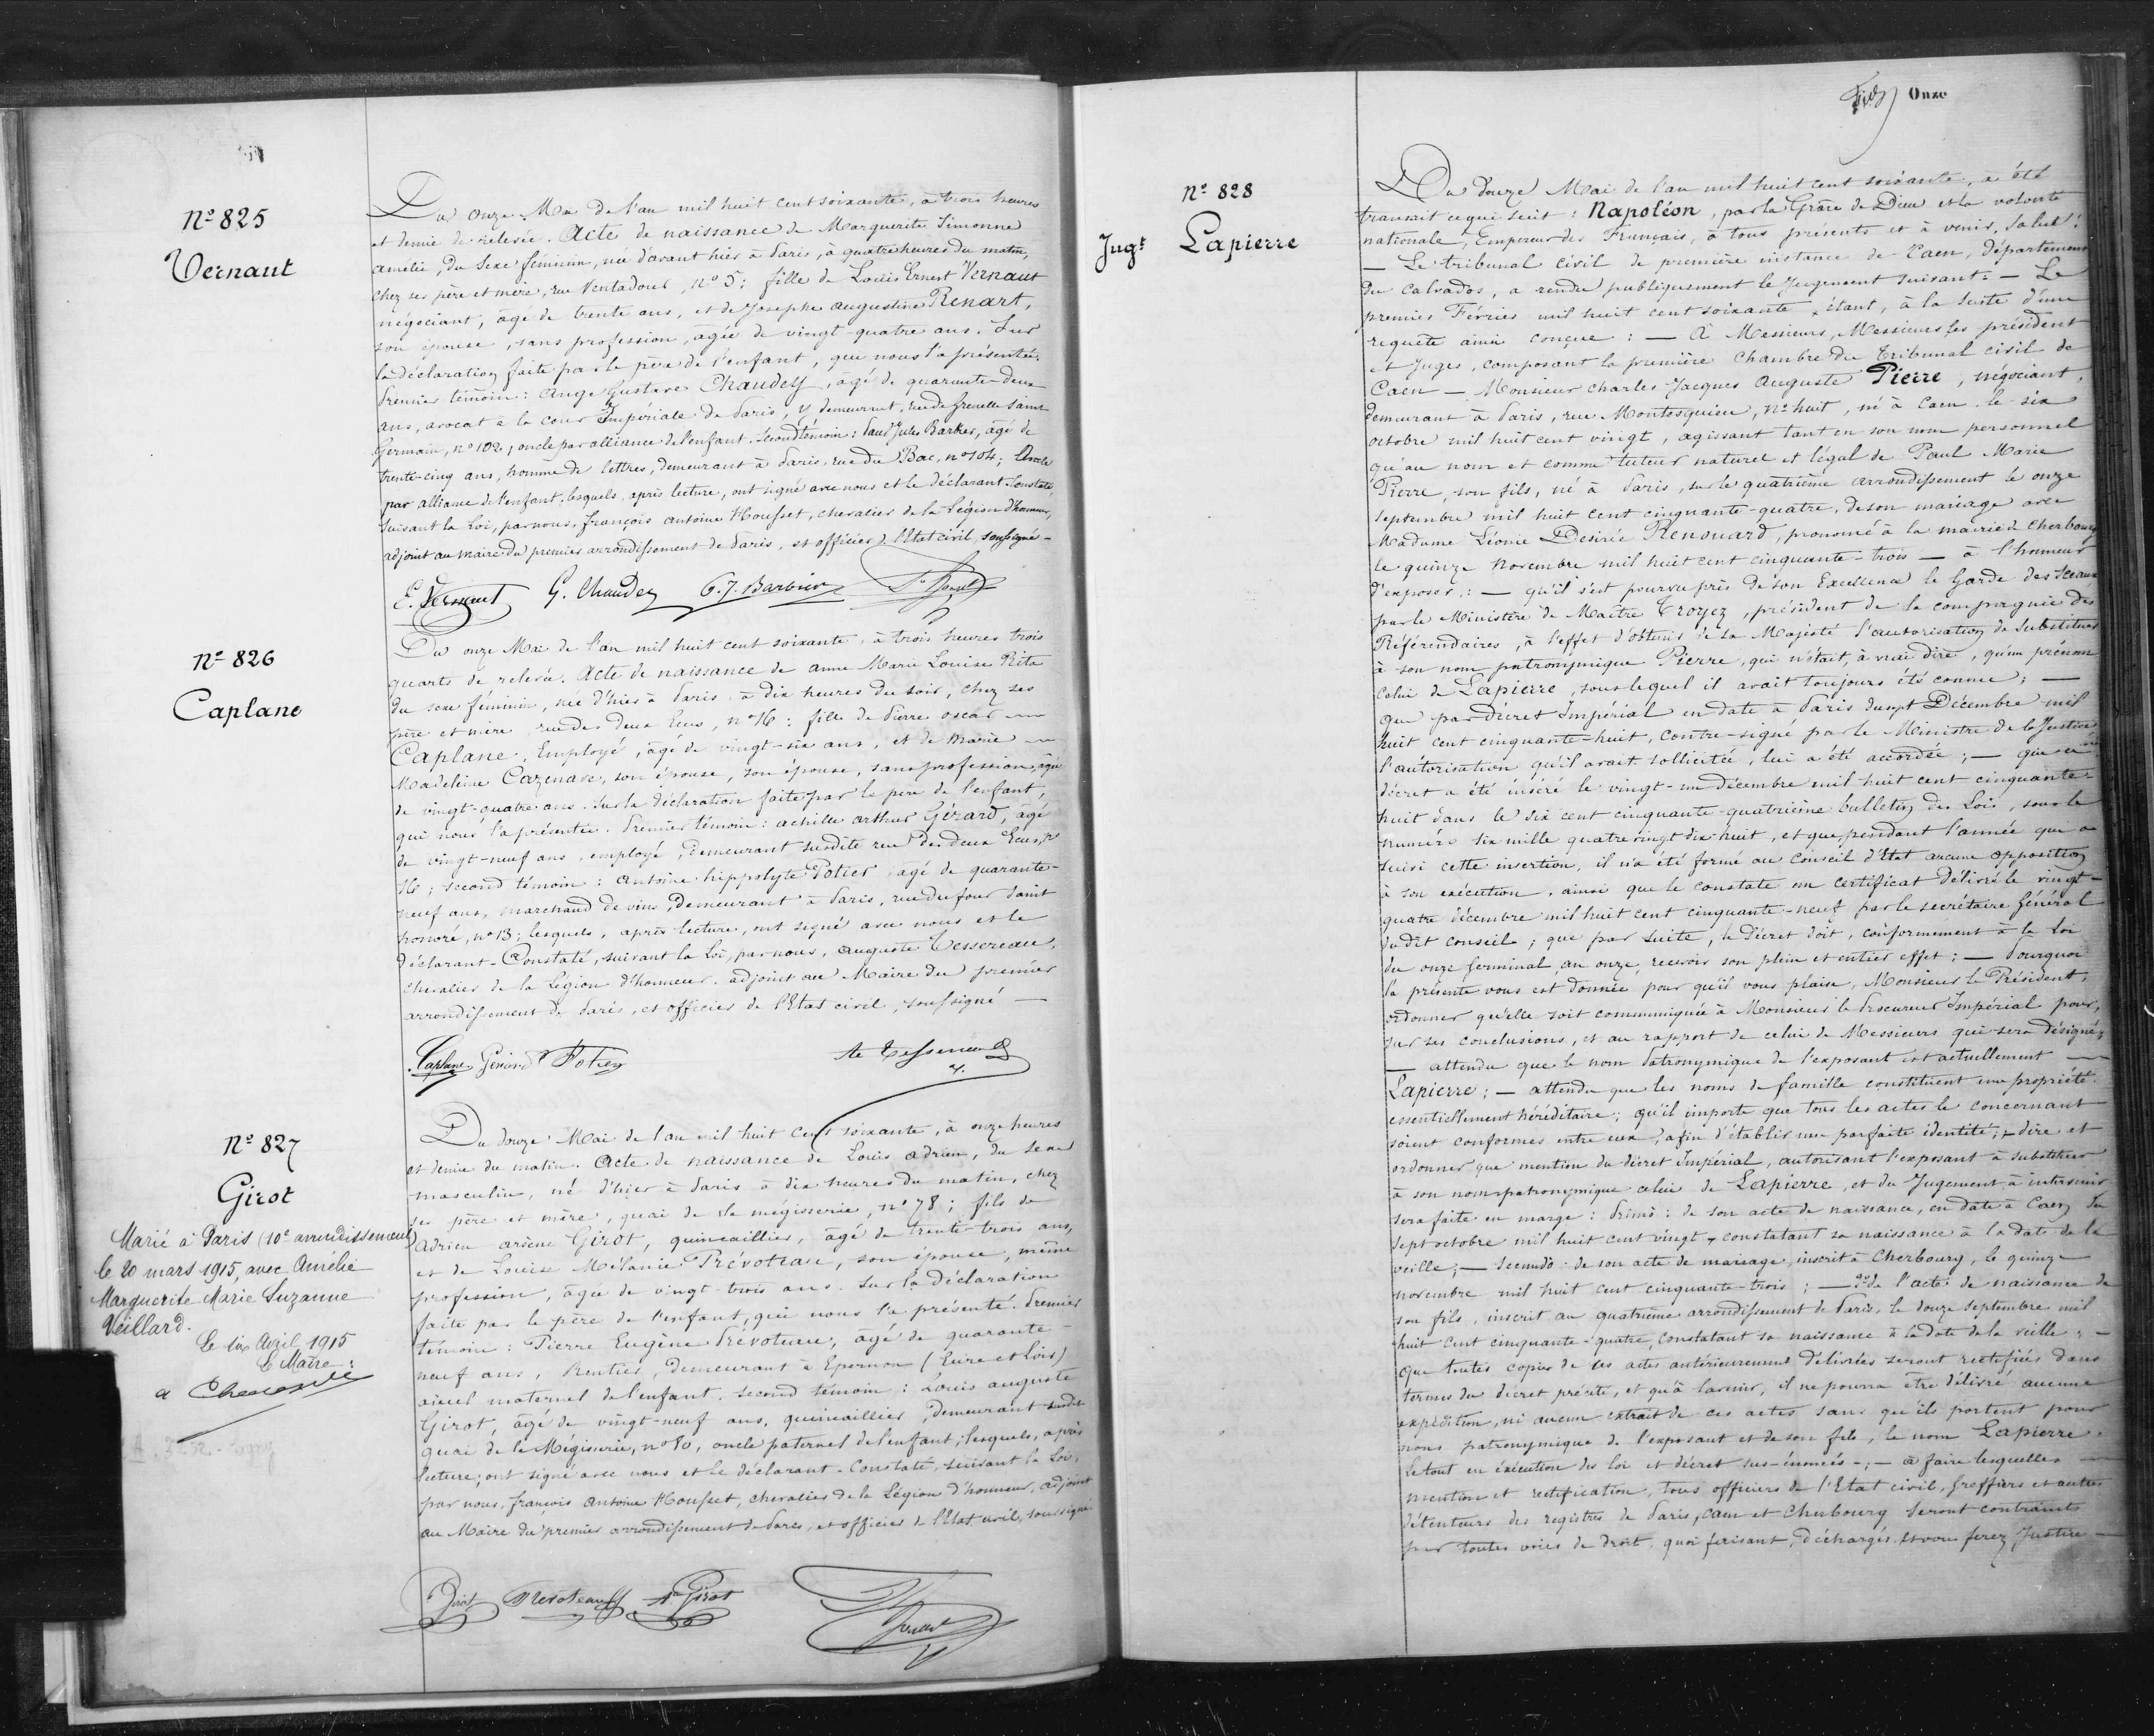 Nº 825
Vernaut
Du onze Mai de l'an mil huit cent soixante, à trois heures
et demie de relevée. Acte de naissance de Marguerite Simonne
amélie, du Sexe féminin, née d'avant hier à Paris, à quatre heures du matin,
chez ses père et mère, rue Ventadour, nº 5; fille de Louis Ernest Vernaut
négociant, âgé de trente ans, et de Josephe augustine Renart,
son épouse, sans profession, agée de vingt-quatre ans. Sur
la déclaration faite par le père de l'enfant, qui nous l'a présentée.
Premier témoin: Ange Gustave Chaudey, âgé de quarante-deux
ans, avocat à la cour Impériale de Paris, y demeurant, rue de Grenelle Saint
Germain, nº 102; oncle par alliance de l'enfant. Second témoin: Paul Jules Barbier, âgé de
trente-cinq ans, homme de lettres, demeurant à Paris, rue du Bac, nº 104; Oncle
par alliance de l'enfant, lesquels, après lecture, ont signé avec nous et le déclarant. Constaté,
suivant la Loi, par nous, françois antoine Housset, chevalier de la Légion d'honneur,
adjoint au maire du premier arrondissement de Paris, et officier de l'Etat civil, soussigné-
E. Vernaut G. Chaudey P. J. Barbier
Nº 826
Caplane
Du onze Mai de l'an mil huit cent soixante, à trois heures trois
quarts de relevée. Acte de naissance de anne Marie Louise Rita
du sexe féminin, née d'hier à Paris, à dix heures du soir, chez ses
père et mère, rue des deux Ecus, nº 16: fille de Pierre oscar
Caplane, Employé, âgé de vingt-six ans, et de Marie
Madeleine Cazenave, son épouse, son épouse, sans profession, agée
de vingt-quatre ans. Sur la déclaration faite par le père de l'enfant,
qui nous l'a présentée. Premier témoin: achille arthur Gérard, âgé
de vingt-neuf ans, employé, demeurant susdite rue des deux Ecus, nº
16; second témoin: antoine hippolyte Potier, agé de quarante-
neuf ans, marchand de vins, demeurant à Paris, rue du four Saint
honoré, nº 13; lesquels, après lecture, ont signé avec nous et le
déclarant-Constaté, suivant la Loi, par nous, auguste Tessereau,
chevalier de la Légion d'honneur, adjoint au Maire du premier
arrondissement de Paris, et officier de l'Etat civil, soussigné —
Caplane Gérard Potier Ate Tessereau
Nº 827
Girot
Du douze Mai de l'an mil huit cent soixante, à onze heures
et demie du matin. Acte de naissance de Louis adrien, du sexe
masculin, né d'hier à Paris à dix heures du matin, chez
ses père et mère, quai de la mégisserie, nº 78; fils de
Adrien arsène Girot, quincaillier, âgé de trente-trois ans,
et de Louise Mélanie Prévoteau, son épouse, même
profession, âgée de vingt-trois ans. Sur la déclaration
faite par le père de l'enfant, qui nous l'a présenté. Premier
témoin: Pierre Eugène Prévoteau, âgé de quarante-
neuf ans, Rentier, demeurant à Epernon (Eure et Loir)
aïeul maternel de l'enfant. Second témoin: Louis auguste
Girot, âgé de vingt-neuf ans, quincaillier, demeurant susdit
quai de la Mégisserie, nº 80, oncle paternel de l'enfant; lesquels, après
lecture, ont signé avec nous et le déclarant-Constaté, suivant la Loi,
par nous, françois antoine Housset, chevalier de la Légion d'honneur, adjoint
au Maire du premier arrondissement de Paris, et officier de l'Etat civil, soussigné
Girot Prevoteau Girot
Marié à Paris (10e arrondissement)
le 20 mars 1915, avec Amélie
Marguerite Marie Suzanne
Veillard.
Le six Avril 1915
Le Maire:
Onze
Nº 828
Jugt Lapierre
Du douze Mai de l'an mil huit cent soixante, a été
transcrit ce qui suit: Napoléon, par la Grâce de Dieu et la volonté
nationale, Empereur des Français, à tous présents et à venir, Salut!
— Le tribunal civil de première instance de Caen, département
du Calvados, a rendu publiquement le Jugement suivant: — Le
premier Février mil huit cent soixante, étant, à la suite d'une
requête ainsi conçue: — A Messieurs, Messieurs les président
et Juges, composant la première Chambre du Tribunal civil de
Caen — Monsieur Charles Jacques Auguste Pierre, négociant,
demeurant à Paris, rue Montesquieu, nº huit, né à Caen le six
octobre mil huit cent vingt, agissant tant en son nom personnel
qu'au nom et comme tuteur naturel et légal de Paul Marie
Pierre, son fils, né à Paris, sur le quatrième arrondissement le onze
septembre mil huit cent cinquante-quatre, de son mariage avec
Madame Léonie Desirée Renouard, prononcé à la mairie de Cherbourg
le quinze Novembre mil huit cent cinquante-trois — à l'honneur
d'exposer: — qu'il s'est pourvu près de Son Excellence le Garde des Sceaux
par le Ministère de Maître Troyez, président de la compagnie des
Référendaires, à l'effet d'obtenir de Sa Majesté l'autorisation de substituer
à son nom patronymique Pierre, qui n'était, à vrai dire, qu'un prénom
celui de Lapierre, sous lequel il avait toujours été connu; —
que par décret Impérial en date à Paris du sept Décembre mil
huit cent cinquante-huit, contre-signé par le Ministre de la Justice
l'autorisation qu'il avait sollicitée, lui a été accordée; — que ce
décret a été inséré le vingt-un décembre mil huit cent cinquante-
huit dans le six cent cinquante-quatrième bulletin des Lois, sous le
numéro six mille quatre vingt dix huit, et que pendant l'année qui a
suivi cette insertion, il n'a été formé au Conseil d'Etat aucune opposition
à son exécution, ainsi que le constate un certificat délivré le vingt-
quatre décembre mil huit cent cinquante-neuf par le secrétaire Général
du dit conseil; que par suite, le décret doit, conformement à la Loi
du onze Germinal, an onze, recevoir son plein et entier effet; — Pourquoi
la présente vous est donnée pour qu'il vous plaise, Monsieur le Président,
ordonner qu'elle soit communiquée à Monsieur le Procureur Impérial pour,
sur ses conclusions, et au rapport de celui de Messieurs qui sera désigné;
— attendu que le nom Patronymique de l'exposant est actuellement
Lapierre; — attendu que les noms de famille constituent une propriété
essentiellement héréditaire; qu'il importe que tous les actes le concernant
soient conformes entre eux, afin d'établir une parfaite identité; — dire et
ordonner que mention du décret Impérial, autorisant l'exposant à substituer
à son nom patronymique celui de Lapierre, et du Jugement à intervenir
sera faite en marge: Primo: de son acte de naissance, en date à Caen du
sept octobre mil huit cent vingt, constatant sa naissance à la date de la
veille; — Secundo: de son acte de mariage, inscrit à Cherbourg, le quinze
novembre mil huit cent cinquante-trois; — 3º de l'acte de naissance de
son fils, inscrit au quatrième arrondissement de Paris, le douze septembre mil
huit cent cinquante-quatre, constatant sa naissance à la date de la veille; —
que toutes copies de ces actes antérieurement délivrées seront rectifiées dans
termes du décret précité, et qu'à l'avenir, il ne pourra être délivré aucune
expédition, ni aucun extrait de ces actes sans qu'ils portent pour
nom patronymique de l'exposant et de son fils, le nom Lapierre.
Le tout en exécution des loi et décret sus-énoncés-; — à faire lesquelles
mention et rectification, tous officiers de l'Etat civil, Greffiers et autres
détenteurs des registres de Paris, Caen et Cherbourg seront contraints
par toutes voies de droit, quoi faisant, déchargés. Et vous ferez Justice —